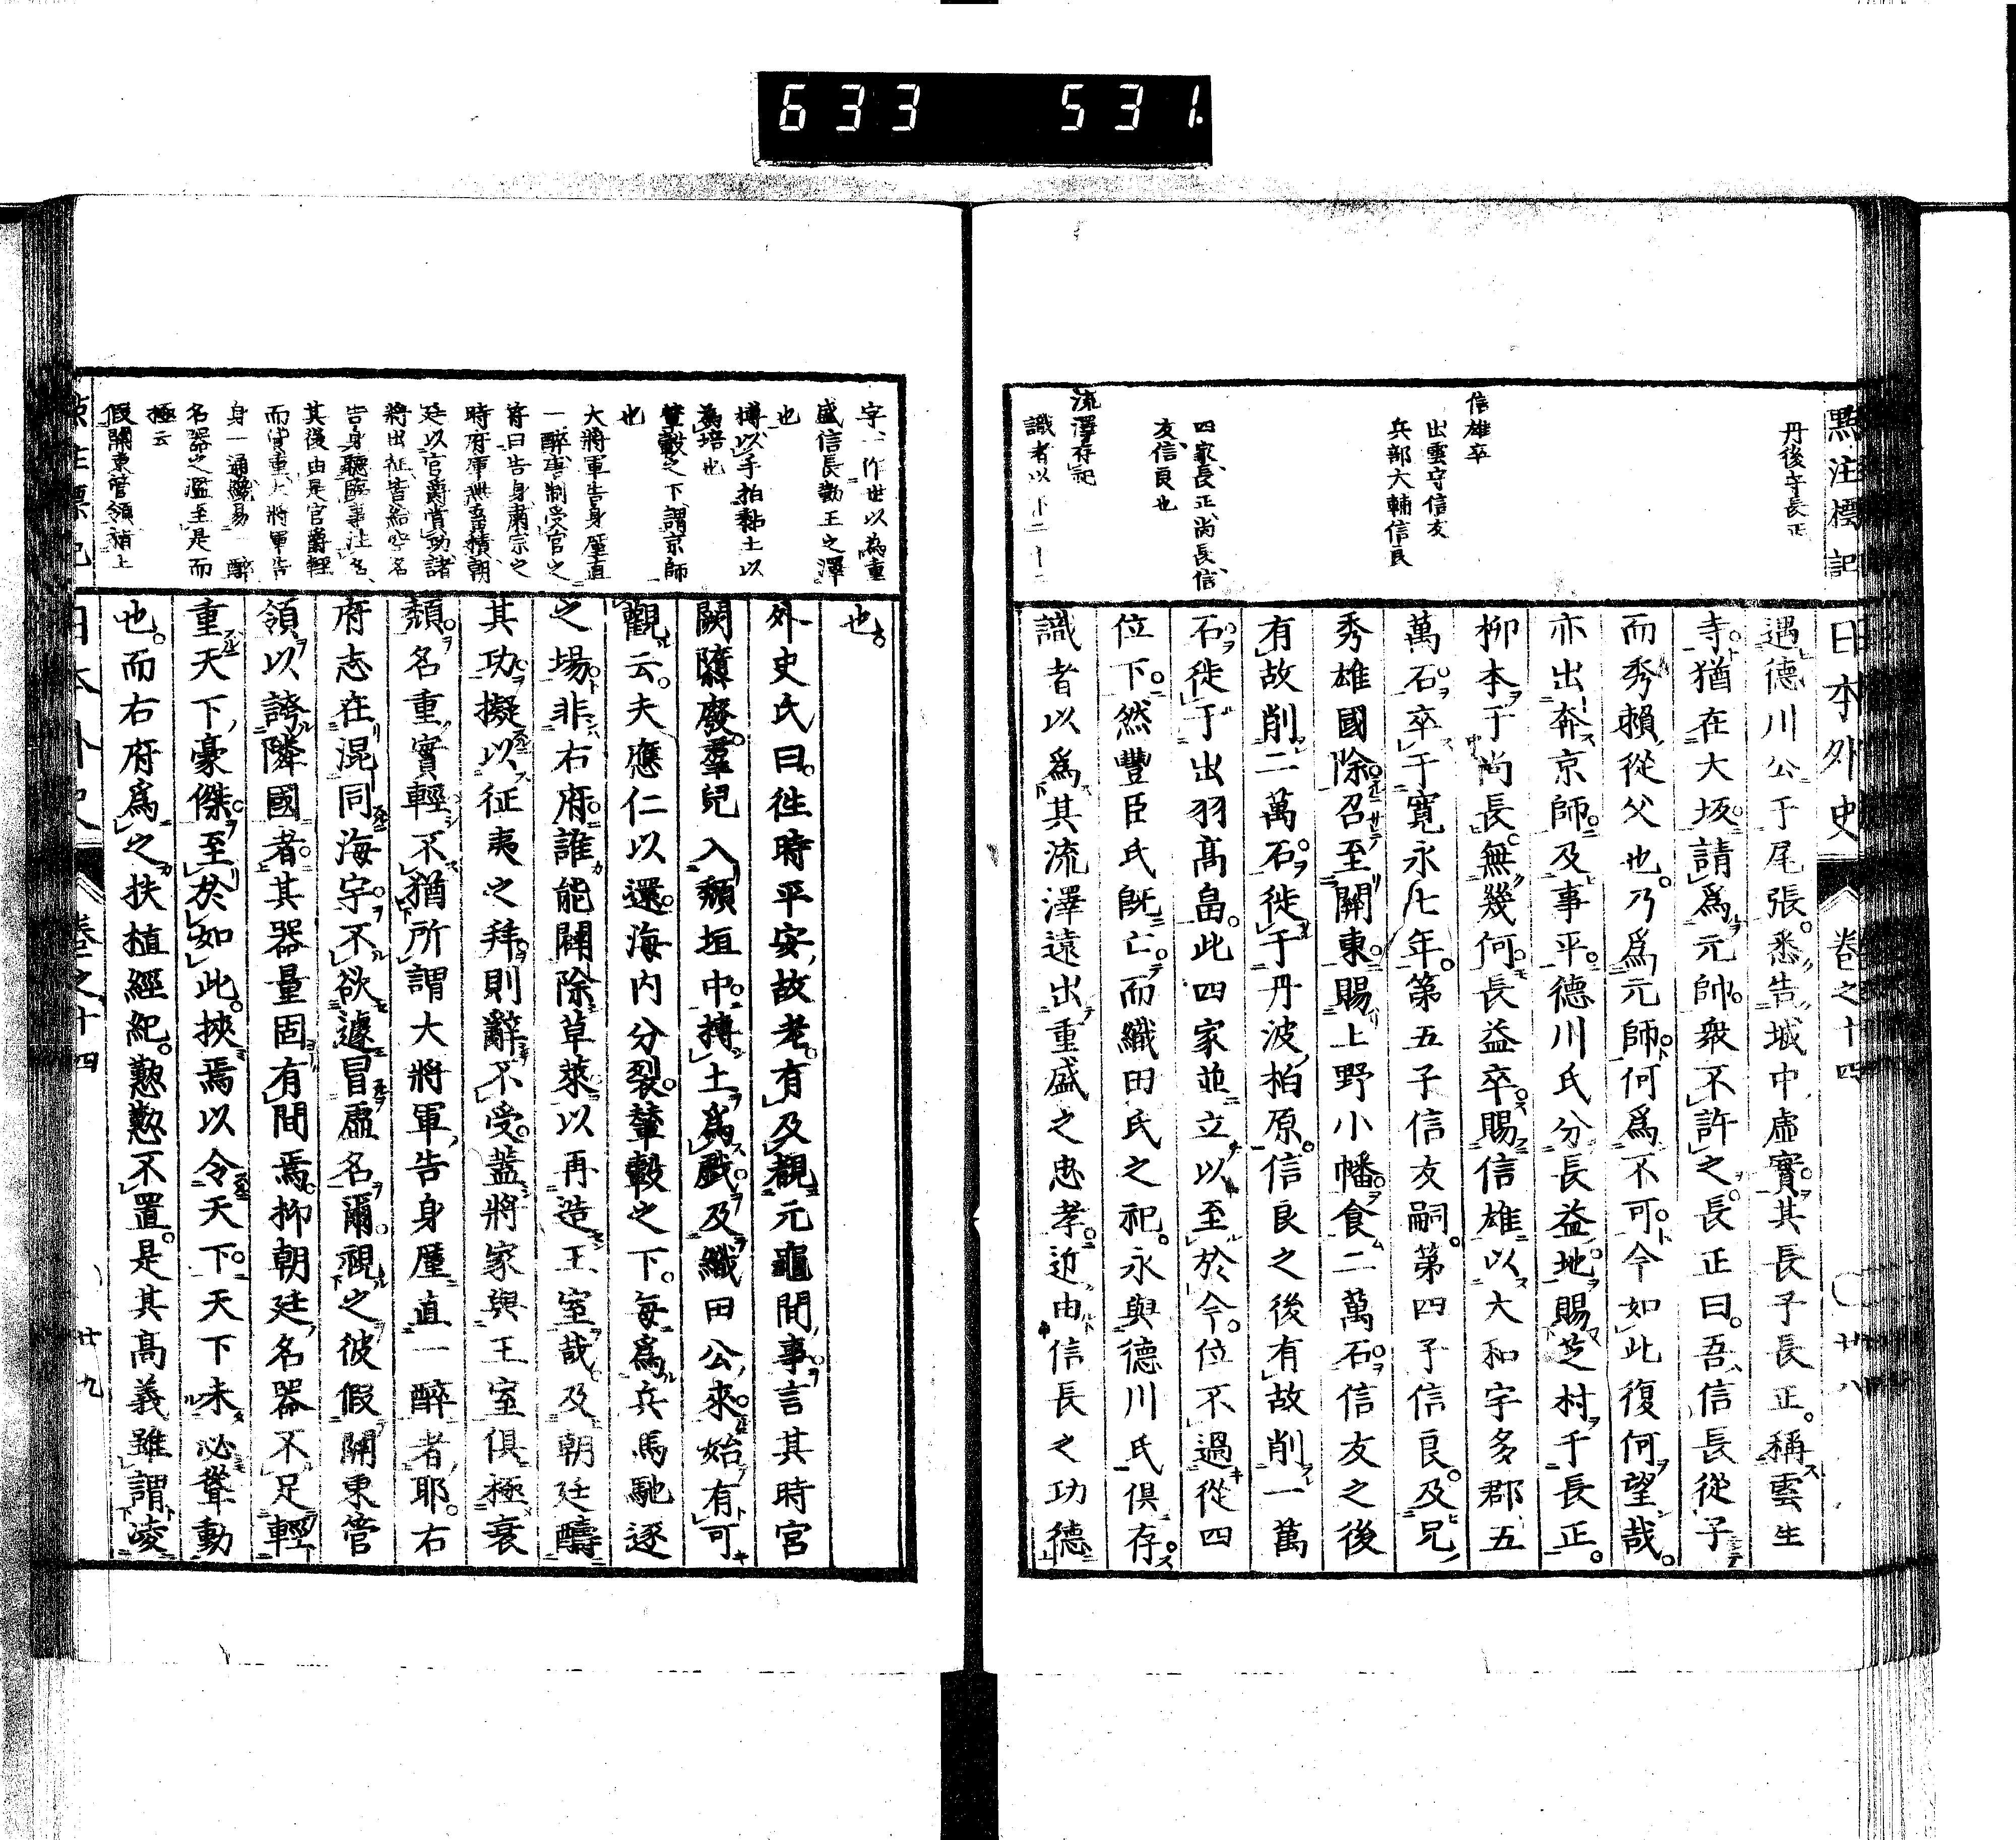 633 531.
點注標記
日本外史
卷之十四
廿八
丹後守長正
信雄卒
出雲守信友
兵部大輔信良
四家、長正、尚長、信
友、信良也
流澤存記
識者以下二十二
遇德川公于尾張。悉告城中虛實。其長子長正。稱雲生
寺。猶在大坂。請爲元帥。衆不許之。長正曰。吾信長從子
而秀賴從父也。乃爲元師。何爲不可。今如此復何望哉。
亦出奔京師。及事平。德川氏分長益地。賜芝村于長正。
柳本于尚長。無幾何。長益卒。賜信雄以大和宇多郡五
萬石。卒于寛永七年。第五子信友嗣。第四子信良。及兄
秀雄國除。召至關東。賜上野小幡。食二萬石。信友之後
有故削二萬石。徙于丹波柏原。信良之後有故削一萬
石。徙于出羽高畠。此四家並立。以至於今。位不過從四
位下。然豐臣氏既亡。而織田氏之祀。永與德川氏俱存。
識者以爲其流澤遠出重盛之忠孝。近由信長之功德
字一作世以為重
盛信長勤王之澤
也
摶以手拍黏土以
為培也
輦轂之下謂京師
也
大將軍告身厪直
一醉唐制受官之
符曰告身肅宗之
時府庫無蓄積朝
廷以官爵賞功諸
將出征皆給空名
告身聽臨事注名
其後由是官爵輕
而貨重大將軍告
身一通纔易一醉
名器之濫至是而
極云
假關東管領猶上
也。
外史氏曰。往時平安故老。有及觀元龜間事。言其時宮
闕隳廢。羣兒入頽垣中。摶土爲戲。及織田公來。始有可
觀云。夫應仁以還。海內分裂。輦轂之下。每爲兵馬馳逐
之場。非右府。誰能闢除草萊以再造王室哉。及朝廷醻
其功。擬以征夷之拜。則辭不受。蓋將家與王室俱極衰
頽。名重實輕。不猶所謂大將軍告身厪直一醉者耶。右
府志在混同海宇。不欲遽冒虛名爾。視之彼假關東管
領以誇隣國者。其器量固有間焉。抑朝廷名器不足輕
重天下。豪傑至於如此。挾焉以令天下。天下未必聳動
也。而右府爲之扶植經紀。懃懃不置。是其高義雖謂凌
點注標記
日本外史
卷之十四
廿九